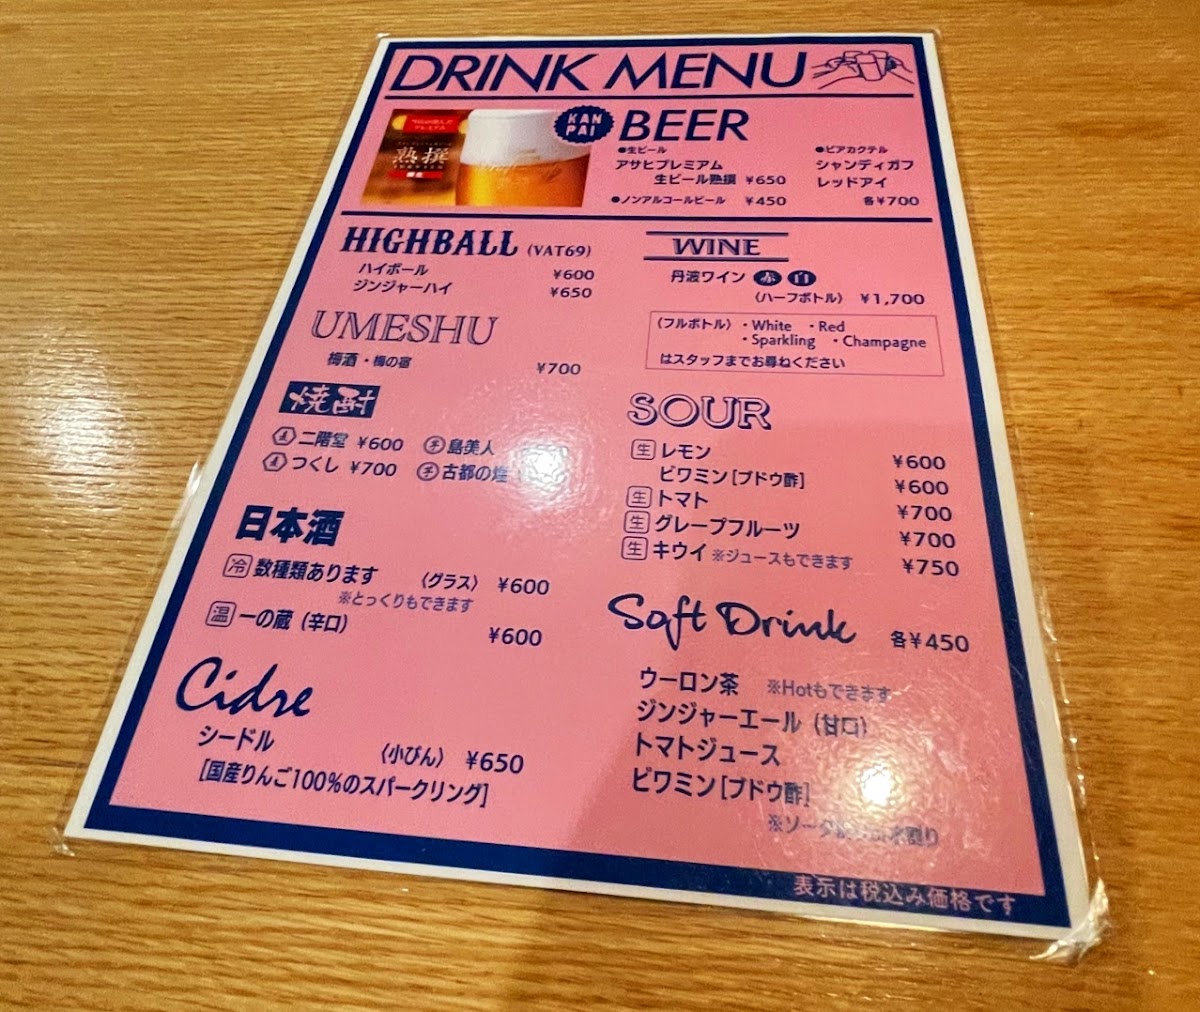 DRINK MENU
KAN
PAI
BEER
熟撰
●生ビール
アサヒプレミアム
生ビール熟撰 ¥650
●ノンアルコールビール ¥450
●ビアカクテル
シャンディガフ
レッドアイ
各¥700
HIGHBALL (VAT69)
ハイボール ¥600
ジンジャーハイ ¥650
UMESHU
梅酒・梅の宿 ¥700
焼酎
麦 二階堂 ¥600 芋 島美人
麦 つくし ¥700 芋 古都の煌
日本酒
冷 数種類あります (グラス) ¥600
※とっくりもできます
温 一の蔵(辛口) ¥600
Cidre
シードル (小びん) ¥650
[国産りんご100%のスパークリング]
WINE
丹波ワイン 赤 白
(ハーフボトル) ¥1,700
(フルボトル)・White ・Red
・Sparkling ・Champagne
はスタッフまでお尋ねください
SOUR
生 レモン ¥600
ビワミン[ブドウ酢] ¥600
生 トマト ¥700
生 グレープフルーツ ¥700
生 キウイ ※ジュースもできます ¥750
Soft Drink 各¥450
ウーロン茶 ※Hotもできます
ジンジャーエール(甘口)
トマトジュース
ビワミン[ブドウ酢]
表示は税込み価格です